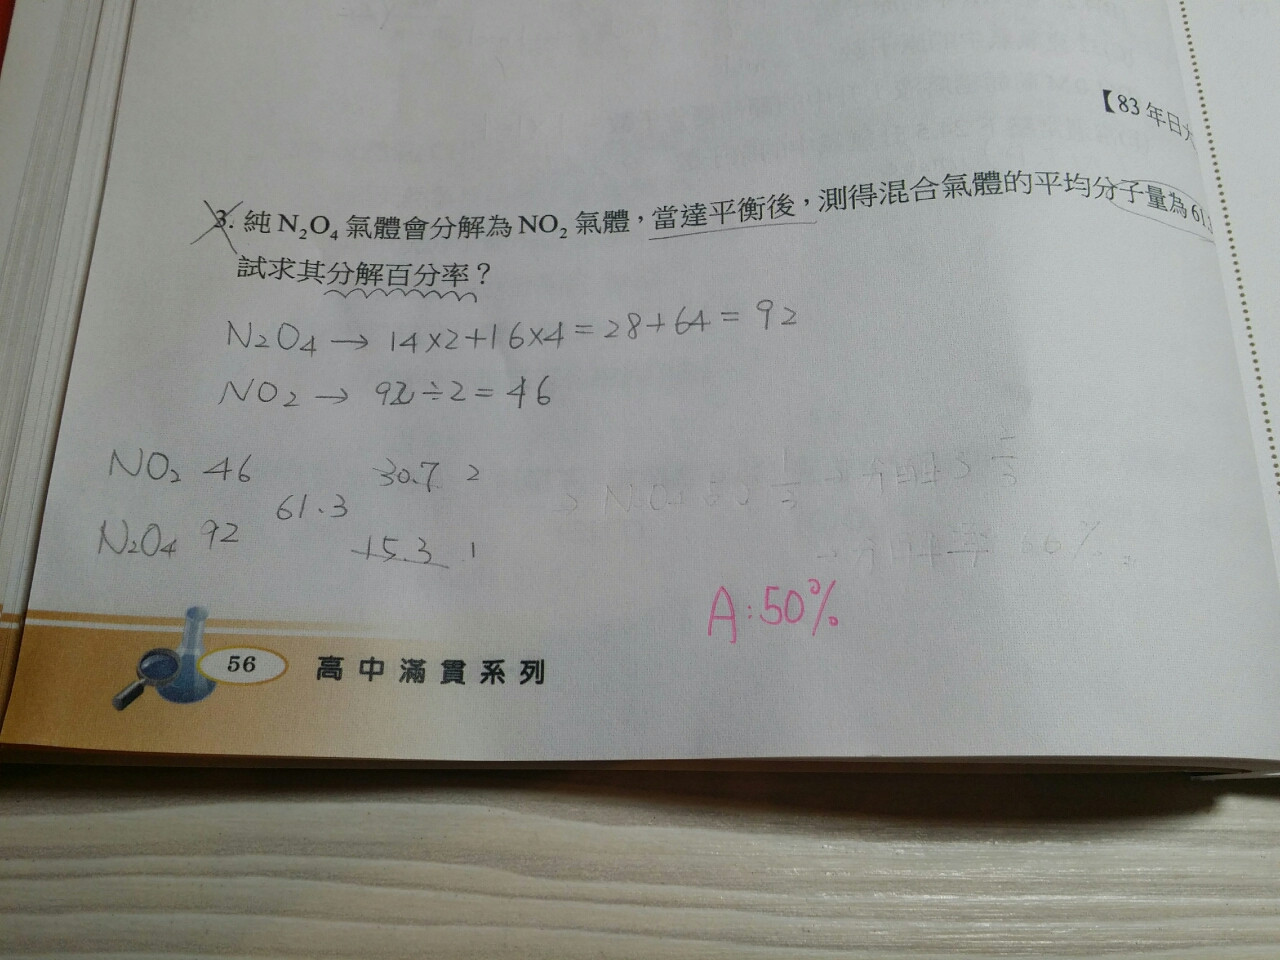 【83年日大
3. 純N₂O₄氣體會分解為NO₂氣體，當達平衡後，測得混合氣體的平均分子量為61.3
試求其分解百分率？
N₂O₄ → 14×2+16×4=28+64=92
NO₂ → 92÷2=46
NO₂ 46 30.7 2
61.3
N₂O₄ 92 15.3 1
A:50%
56 高中滿貫系列